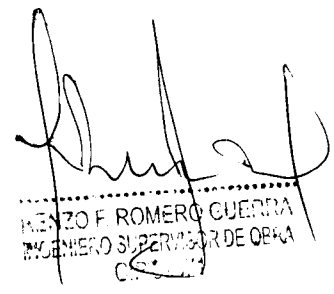 KENZO F. ROMERO GUERRA
INGENIERO SUPERVISOR DE OBRA